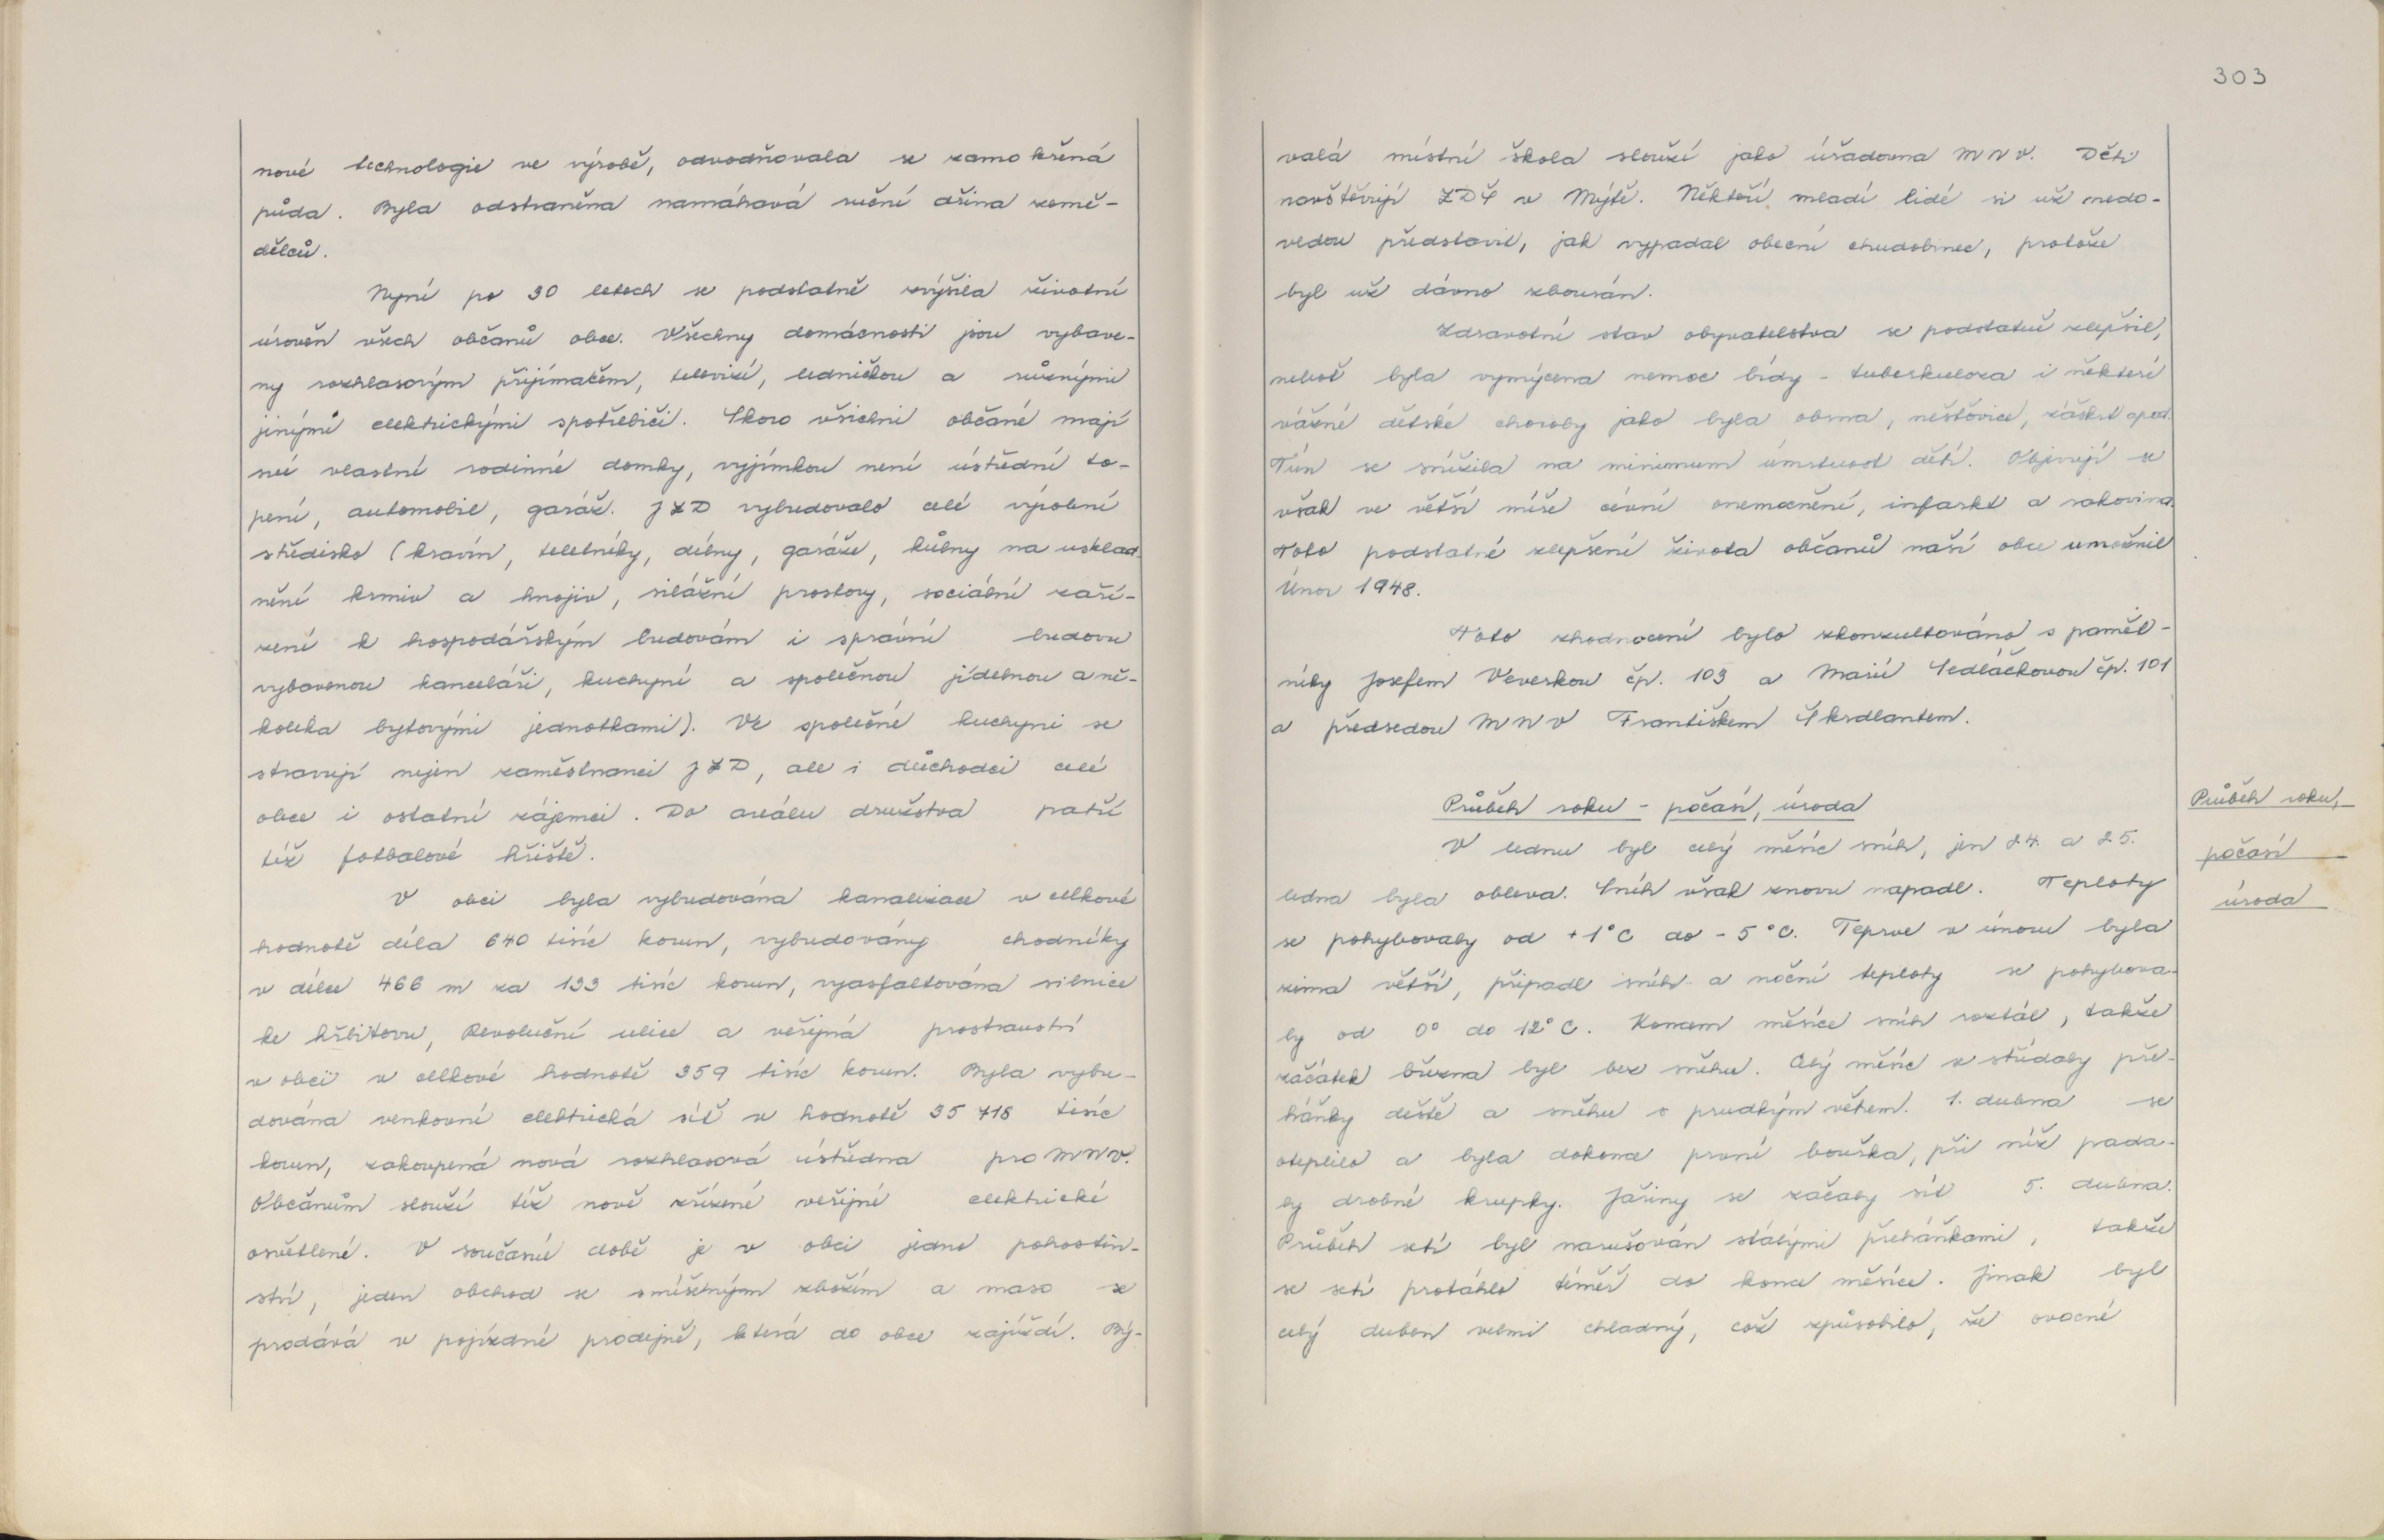 nové technologie ve výrobě, odvodňovala se zamokřená
půda. Byla odstraněna namáhavá ruční dřina země-
dělců.
Nyní po 30 letech se podstatně zvýšila životní
úroveň všech občanů obce. Všechny domácnosti jsou vybave-
ny rozhlasovým přijímačem, televizí, ledničkou a různými
jinými elektrickými spotřebiči. Skoro všichni občané mají
své vlastní rodinné domky, vyjímkou není ústřední to-
pení, automobil, garáž. JZD vybudovalo celé výrobní
středisko (kravín, teletníky, dílny, garáže, kůlny na usklad-
nění krmiv a hnojiv, silážní prostory, sociální zaří-
zení k hospodářským budovám i správní budovu
vybavenou kanceláři, kuchyní a společnou jídelnou a ně-
kolika bytovými jednotkami). Ve společné kuchyni se
stravují nejen zaměstnanci JZD, ale i důchodci celé
obce i ostatní zájemci. Do areálu družstva patří
též fotbalové hřiště.
V obci byla vybudována kanalizace v celkové
hodnotě díla 640 tisíc korun, vybudovány chodníky
v délce 466 m za 133 tisíc korun, vyasfaltována silnice
ke hřbitovu, Revoluční ulice a veřejná prostranství
v obci v celkové hodnotě 359 tisíc korun. Byla vybu-
dována venkovní elektrická síť v hodnotě 35 718 tisíc
korun, zakoupená nová rozhlasová ústředna pro MNV.
Občanům slouží též nově zřízené veřejné elektrické
osvětlené. V současné době je v obci jedno pohostin-
ství, jeden obchod se smíšeným zbožím a maso se
prodává v pojízdné prodejně, která do obce zajíždí. Bý-
303
valá místní škola slouží jako úřadovna MNV. Děti
navštěvují ZDŠ v Mýtě. Někteří mladí lidé si už nedo-
vedou představit, jak vypadal obecní chudobinec, protože
byl už dávno zbourán.
Zdravotní stav obyvatelstva se podstatně zlepšil,
neboť byla vymýcena nemoc bídy - tuberkuloza i některé
vážné dětské choroby jako byla obrna, neštovice, záškrt apod.
Tím se snížila na minimum úmrtnost dětí. Objevují se
však ve větší míře cévní onemocnění, infarkt a rakovina.
Toto podstatné zlepšení života občanů naší obce umožnil
Únor 1948.
Toto zhodnocení bylo zkonzultováno s pamět-
níky Josefem Veverkou čp. 103 a Marií Sedláčkovou čp. 101
a předsedou MNV Františkem Škrdlantem.
Průběh roku - počasí, úroda
Průběh roku,
počasí
úroda
V lednu byl celý měsíc sníh, jen 24. a 25.
ledna byla obleva. Sníh však znovu napadl. Teploty
se pohybovaly od +1°C do -5°C. Teprve v únoru byla
zima větší, připadl sníh a noční teploty se pohybova-
ly od 0° do 12°C. Koncem měsíce sníh roztál, takže
začátek března byl bez sněhu. Celý měsíc se střídaly pře-
háňky deště a sněhu s prudkým větrem. 1. dubna se
oteplilo a byla dokonce první bouřka, při níž pada-
ly drobné krupky. Jařiny se začaly sít 5. dubna.
Průběh setí byl narušován stálými přeháňkami, takže
se setí protáhlo téměř do konce měsíce. Jinak byl
celý duben velmi chladný, což způsobilo, že ovocné